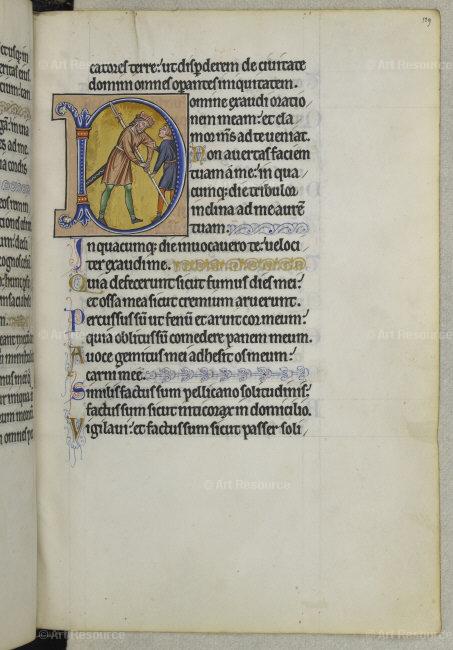 129
catores terre: ut disperderem de civitate
domini omnes operantes iniquitatem.
Domine exaudi oratio
nem meam: et cla
mor meus ad te veniat.
Non avertas faciem
tuam a me: in qua
cumq; die tribulor
inclina ad me aurem
tuam.
In quacumq; die invocavero te: veloci
ter exaudi me.
Quia defecerunt sicut fumus dies mei:
et ossa mea sicut cremium aruerunt.
Percussus sum ut fenum et aruit cor meum:
quia oblitus sum comedere panem meum.
A voce gemitus mei adhesit os meum:
carni mee.
Similis factus sum pellicano solitudinis:
factus sum sicut nicticorax in domicilio.
Vigilavi: et factus sum sicut passer soli
© Art Resource